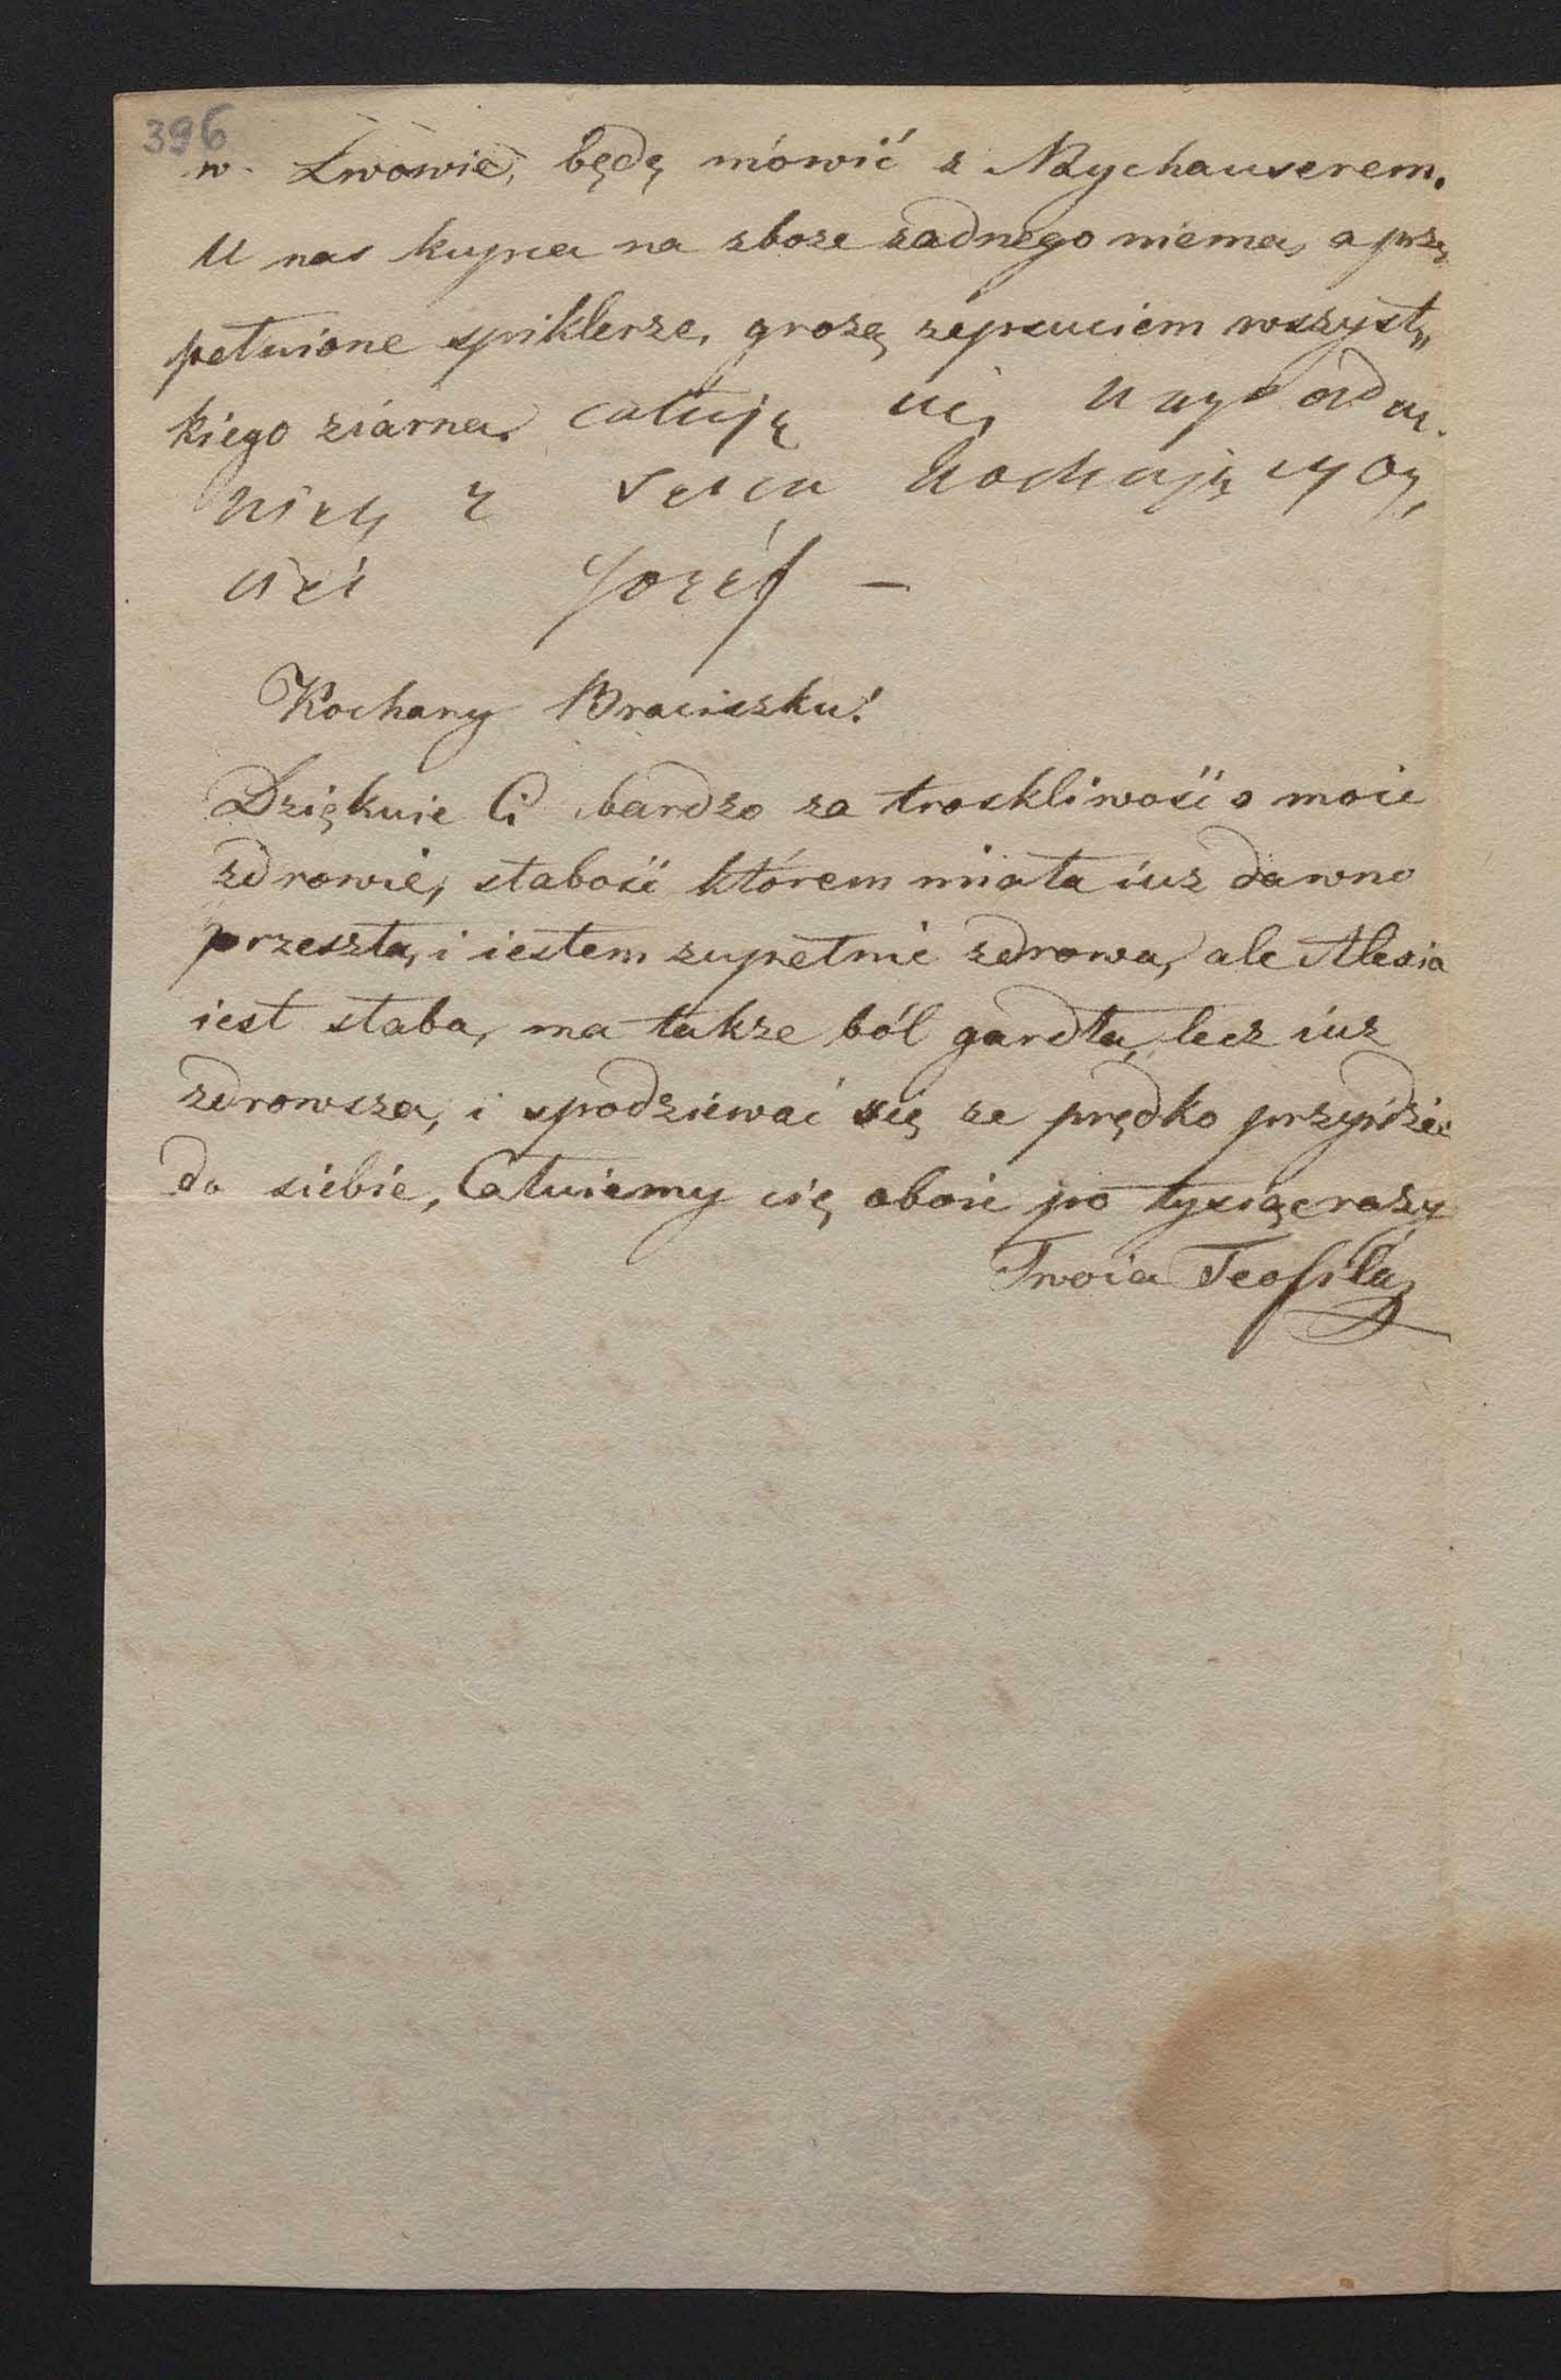 396
w Lwowie, będę mówić z Naychauserem.
U nas kupca na zboze zadnego niema, a prze
pełnione spiklerze, grozą zepsuciem wszyst„
kiego ziarna. całuję cię
z serca kochający
Jozéf —
Kochany Braciszku!
Dziękuie Ci bardzo za troskliwość o moie
zdrowie, słabość którem miała iuz dawno
przeszła, i iestem zupełnie zdrowa, ale Alexia
iest słaba, ma takze ból gardła, lecz iuz
zdrowsza, i spodziewać się ze prędko przyidzie
do siebie, Całuiemy cię oboie po tysiąc razy
Twoia Teofila